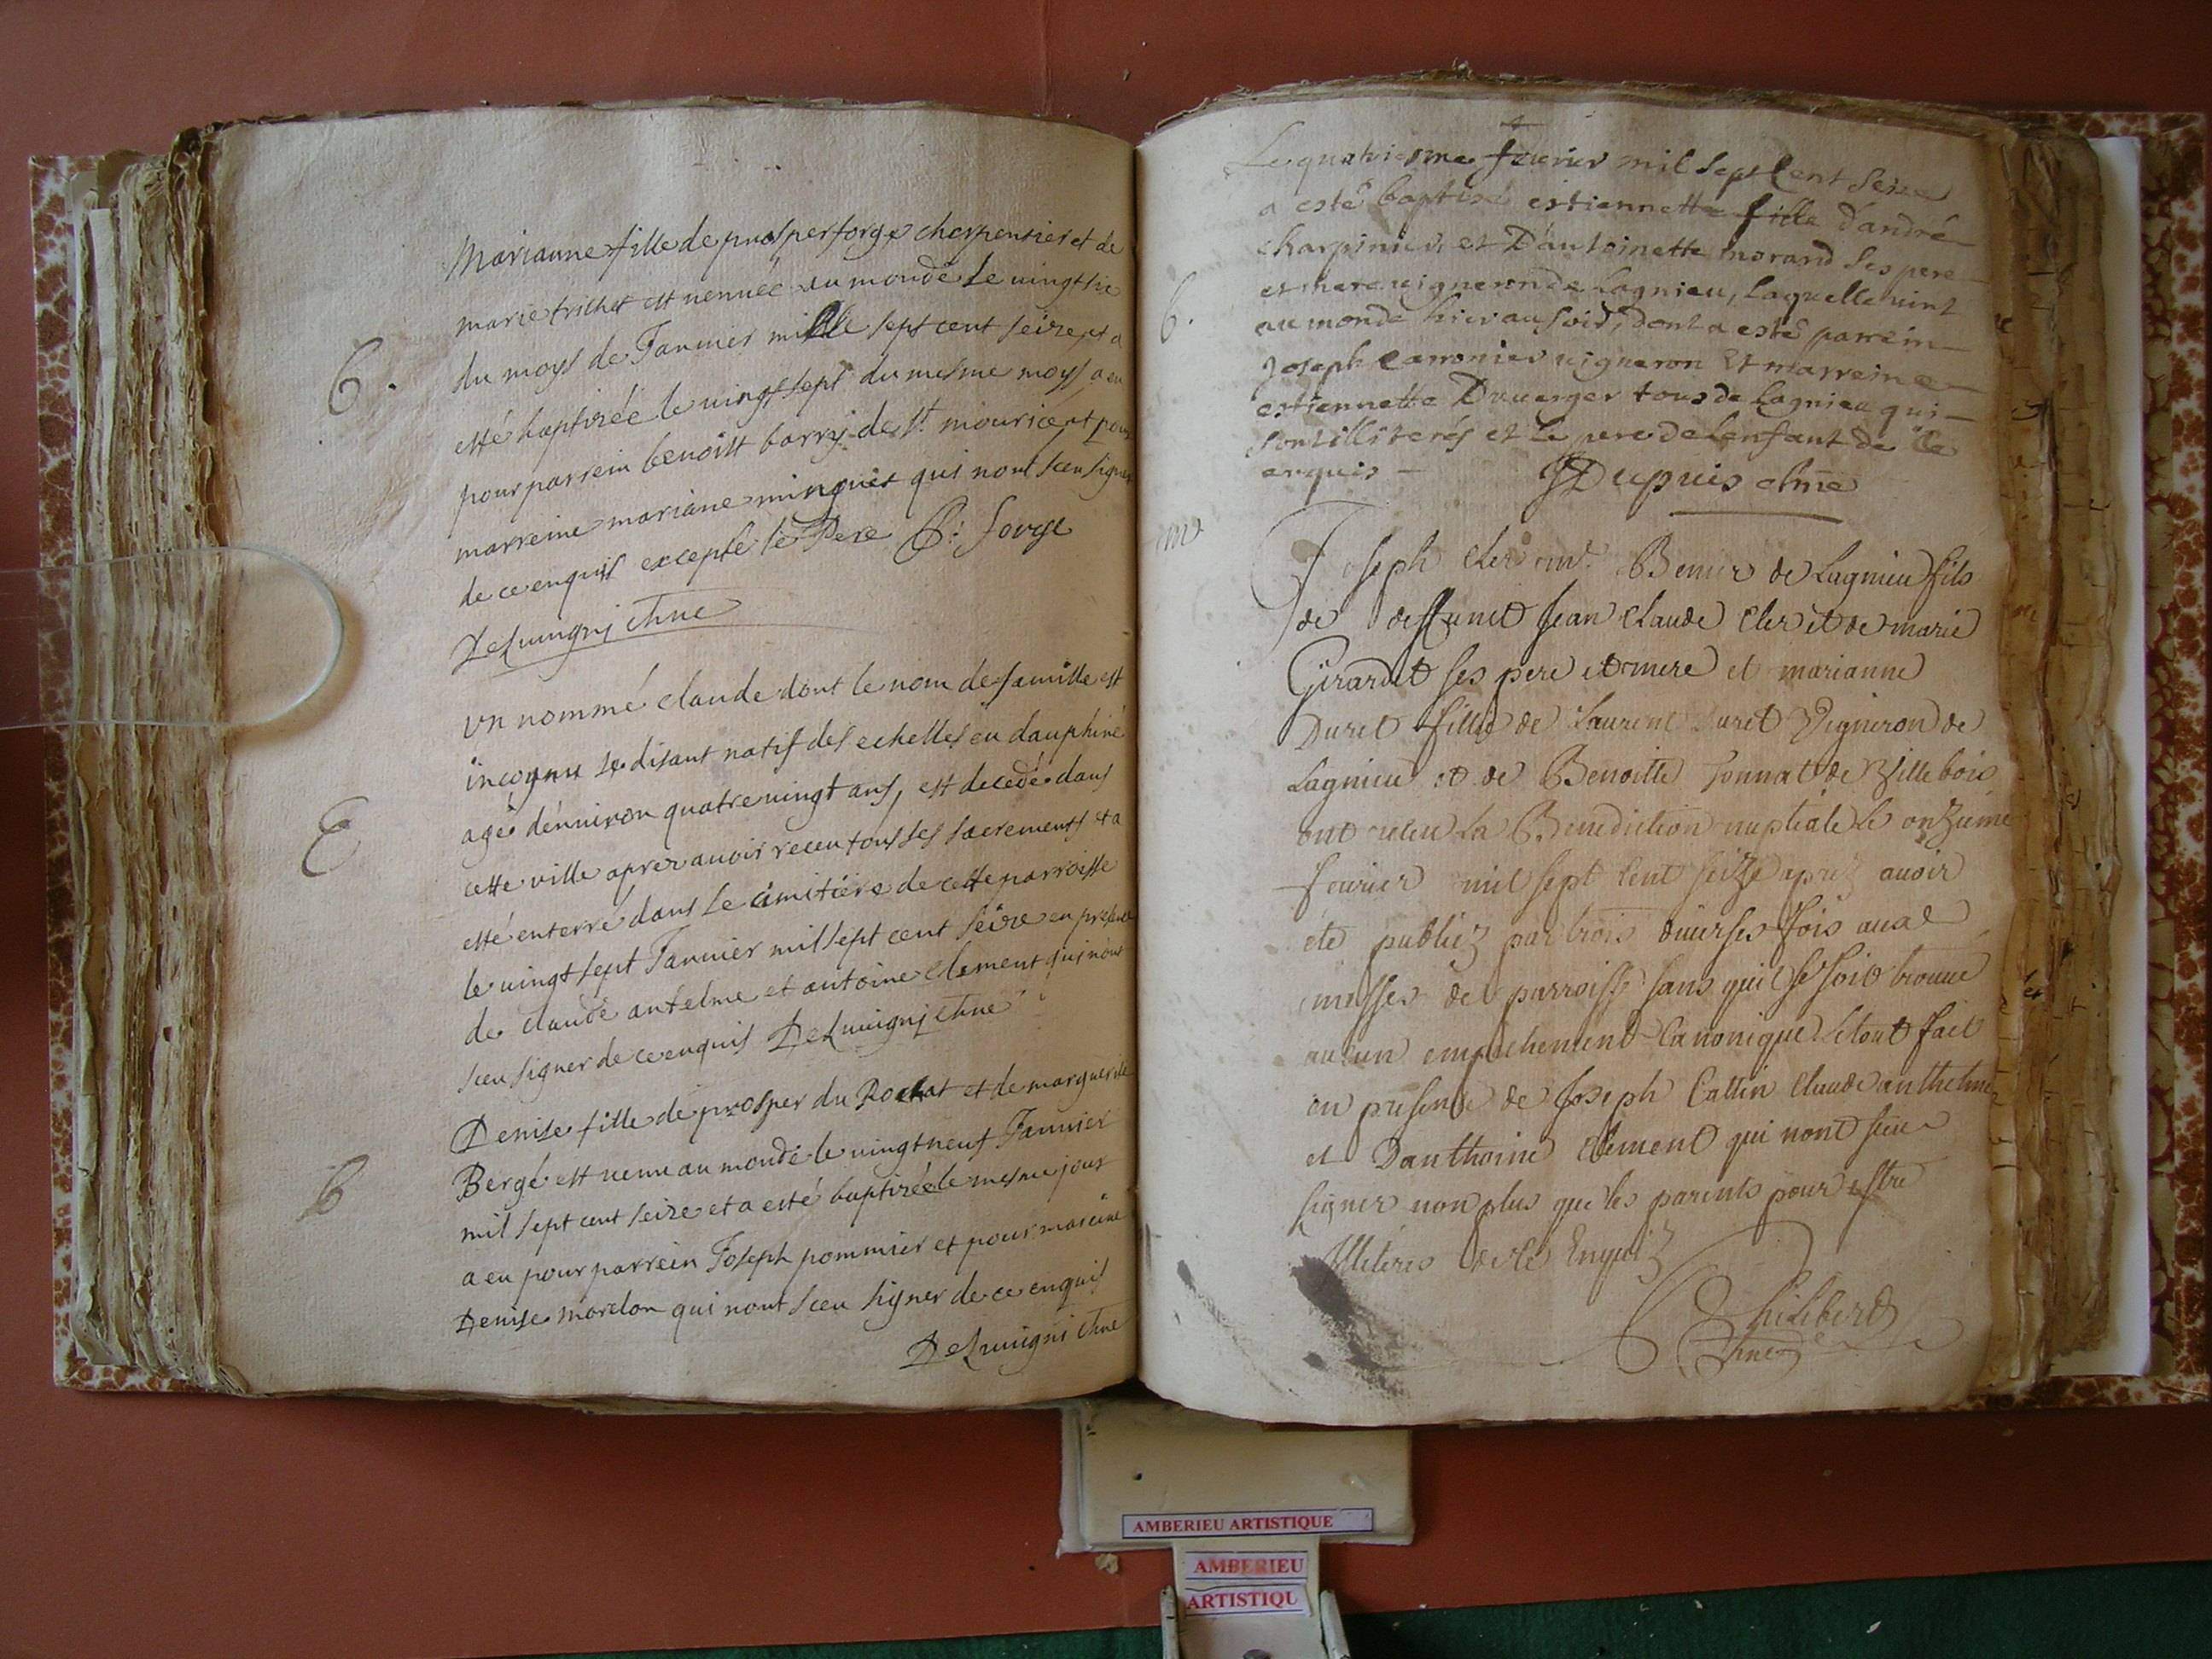 Marianne fille de prosper forge charpentier et de
marie trichet est vennuë au monde le vingt six
du moys de Janvier mille sept cent seize et a
esté baptizée le vingt sept du mesme moys a eu
pour parrein benoist barry de St mourice et pour
marreine mariane minguet qui nont sceu signer
de ce enquis excepté le Pere P: forge
B.
Un nommé claude dont le nom de famille est
incognu se disant natif des echelles en dauphiné
agé dénniron quatre vingt ans, est decedé dans
cette ville aprez avoir receu tous ses sacrements et a
esté enterré dans le cimitiere de cette parroisse
le vingt sept Janvier mil sept cent seize en presence
de claude antelme et antoine clement qui nont
sceu signer de ce enquis
E
Denise fille de prosper du Rochat et de marguerite
Bergé est venu au monde le vingt neuf Janvier
mil sept cent seize et a esté baptizée le mesme jour
a eu pour parrein Joseph pommier et pour mareine
Denise morelon qui nont sceu signer de ce enquis
b
Le quatriesme fevrier mil sept Cent seize
a esté baptisé estiennette fille d'andré
charpinier, et D'antoinette morand ses pere
et mere vigneron de Lagnieu, laquelle vint
au monde hier au soir, dont a esté parrein
Joseph vigneron Et marreine
estiennette Duverger tous de Lagnieu qui
sont illiterés et le pere de lenfant de ce
enquis — Dupuis chne
B.
Joseph Cler Benier de Lagnieu fils
de deffunct Jean Claude Cler et de marie
Girardet ses pere et mere et marianne
Duret fille de Laurent Duret Vigneron de
Lagnieu et de Benoitte Tonnat de Villebois
ont receu La Benediction nuptiale le onzieme
fevrier mil sept Cent seize aprez avoir
été publiez par trois diverses fois aux
messes de parroisse sans quil se soit trouvé
aucun empechement Canonique le tout fait
en presence de Joseph Cattin Claude anthelme
et Danthoine Clement qui nont sceu
signer non plus que les parents pour estre
Illiteres de ce Enquiz
Philiberd
Chne
AMBERIEU ARTISTIQUE
AMBERIEU
ARTISTIQU